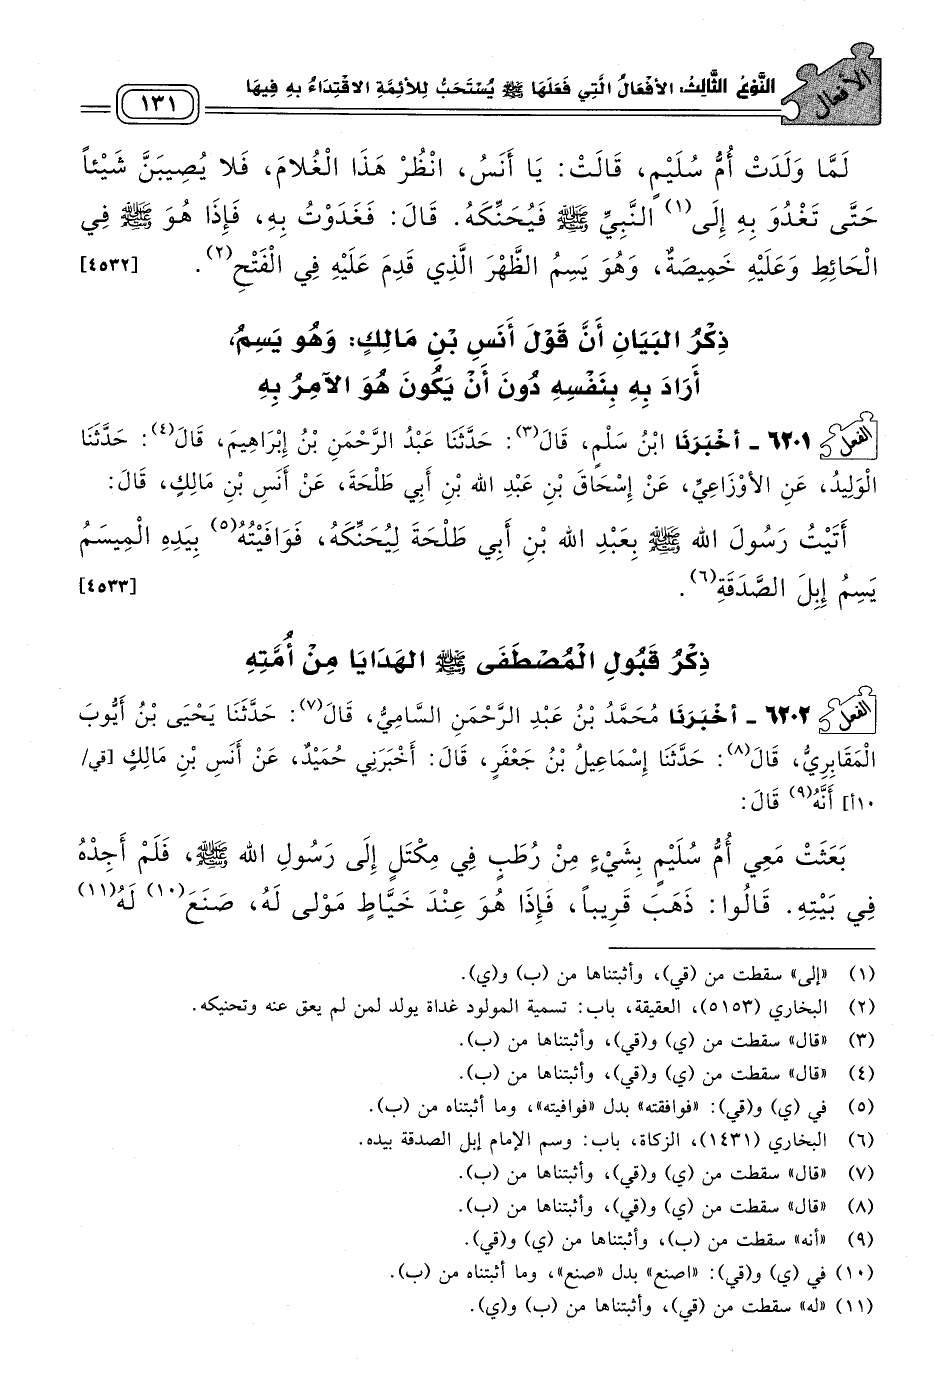 الأفعال
النَّوْعُ الثَّالِثُ: الأَفْعَالُ الَّتِي فَعَلَهَا ﷺ يُسْتَحَبُّ لِلأَئِمَّةِ الاقْتِدَاءُ بِهِ فِيهَا
١٣١
لَمَّا وَلَدَتْ أُمُّ سُلَيْمٍ، قَالَتْ: يَا أَنَسُ، انْظُرْ هَذَا الْغُلَامَ، فَلا يُصِيبَنَّ شَيْئاً
حَتَّى تَغْدُوَ بِهِ إِلَى(١) النَّبِيِّ ﷺ فَيُحَنِّكَهُ. قَالَ: فَغَدَوْتُ بِهِ، فَإِذَا هُوَ فِي
الْحَائِطِ وَعَلَيْهِ خَمِيصَةٌ، وَهُوَ يَسِمُ الظَّهْرَ الَّذِي قَدِمَ عَلَيْهِ فِي الْفَتْحِ(٢). [٤٥٣٢]
ذِكْرُ البَيَانِ أَنَّ قَوْلَ أَنَسِ بْنِ مَالِكٍ: وَهُو يَسِمُ،
أَرَادَ بِهِ بِنَفْسِهِ دُونَ أَنْ يَكُونَ هُوَ الآمِرُ بِهِ
الفعل ٦٢٠١ ـ أخْبَرَنَا ابْنُ سَلْمٍ، قَالَ(٣): حَدَّثَنَا عَبْدُ الرَّحْمَنِ بْنُ إِبْرَاهِيمَ، قَالَ(٤): حَدَّثَنَا
الْوَلِيدُ، عَنِ الأَوْزَاعِيِّ، عَنْ إِسْحَاقَ بْنِ عَبْدِ الله بْنِ أَبِي طَلْحَةَ، عَنْ أَنَسِ بْنِ مَالِكٍ، قَالَ:
أَتَيْتُ رَسُولَ الله ﷺ بِعَبْدِ الله بْنِ أَبِي طَلْحَةَ لِيُحَنِّكَهُ، فَوَافَيْتُهُ(٥) بِيَدِهِ الْمِيسَمُ
يَسِمُ إِبِلَ الصَّدَقَةِ(٦). [٤٥٣٣]
ذِكْرُ قَبُولِ الْمُصْطَفَى ﷺ الهَدَايَا مِنْ أُمَّتِهِ
الفعل ٦٢٠٢ ـ أخْبَرَنَا مُحَمَّدُ بْنُ عَبْدِ الرَّحْمَنِ السَّامِيُّ، قَالَ(٧): حَدَّثَنَا يَحْيَى بْنُ أَيُّوبَ
الْمَقَابِرِيُّ، قَالَ(٨): حَدَّثَنَا إِسْمَاعِيلُ بْنُ جَعْفَرٍ، قَالَ: أَخْبَرَنِي حُمَيْدٌ، عَنْ أَنَسِ بْنِ مَالِكٍ [قي/
١٠أ] أَنَّهُ(٩) قَالَ:
بَعَثَتْ مَعِي أُمُّ سُلَيْمٍ بِشَيْءٍ مِنْ رُطَبٍ فِي مِكْتَلٍ إِلَى رَسُولِ الله ﷺ، فَلَمْ أَجِدْهُ
فِي بَيْتِهِ. قَالُوا: ذَهَبَ قَرِيباً، فَإِذَا هُوَ عِنْدَ خَيَّاطٍ مَوْلى لَهُ، صَنَعَ(١٠) لَهُ(١١)
(١) «إلى» سقطت من (قي)، وأثبتناها من (ب) و(ي).
(٢) البخاري (٥١٥٣)، العقيقة، باب: تسمية المولود غداة يولد لمن لم يعق عنه وتحنيكه.
(٣) «قال» سقطت من (ي) و(قي)، وأثبتناها من (ب).
(٤) «قال» سقطت من (ي) و(قي)، وأثبتناها من (ب).
(٥) في (ي) و(قي): «فوافقته» بدل «فوافيته»، وما أثبتناه من (ب).
(٦) البخاري (١٤٣١)، الزكاة، باب: وسم الإمام إبل الصدقة بيده.
(٧) «قال» سقطت من (ي) و(قي)، وأثبتناها من (ب).
(٨) «قال» سقطت من (ي) و(قي)، وأثبتناها من (ب).
(٩) «أنه» سقطت من (ب)، وأثبتناها من (ي) و(قي).
(١٠) في (ي) و(قي): «اصنع» بدل «صنع»، وما أثبتناه من (ب).
(١١) «له» سقطت من (قي)، وأثبتناها من (ب) و(ي).